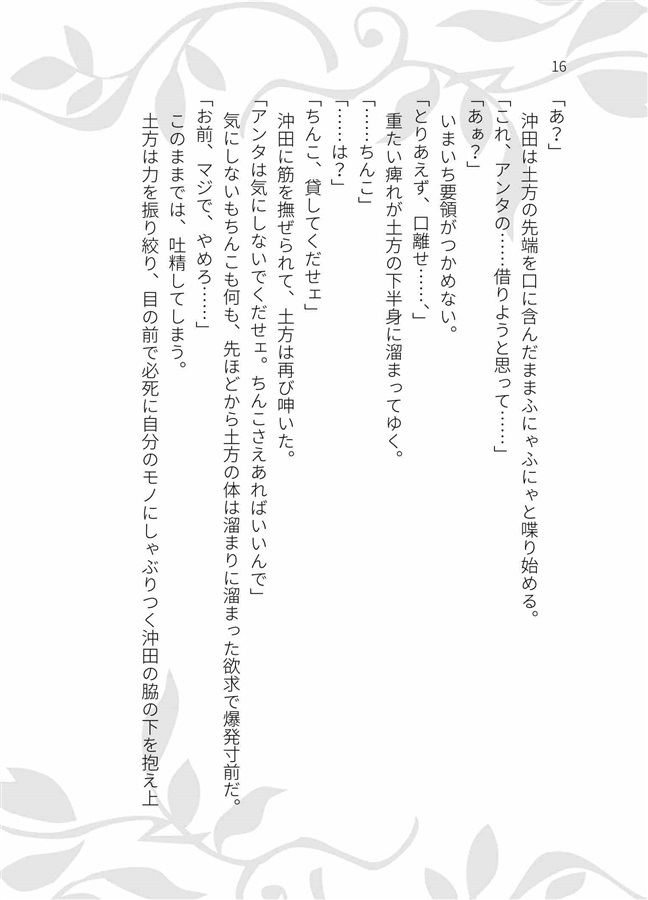 16
「あ？」
沖田は土方の先端を口に含んだままふにゃふにゃと喋り始める。
「これ、アンタの……借りようと思って……」
「あぁ？」
いまいち要領がつかめない。
「とりあえず、口離せ……、」
重たい痺れが土方の下半身に溜まってゆく。
「……ちんこ」
「……は？」
「ちんこ、貸してくだせェ」
沖田に筋を撫ぜられて、土方は再び呻いた。
「アンタは気にしないでくだせェ。ちんこさえあればいいんで」
気にしないもちんこも何も、先ほどから土方の体は溜まりに溜まった欲求で爆発寸前だ。
「お前、マジで、やめろ……」
このままでは、吐精してしまう。
土方は力を振り絞り、目の前で必死に自分のモノにしゃぶりつく沖田の脇の下を抱え上